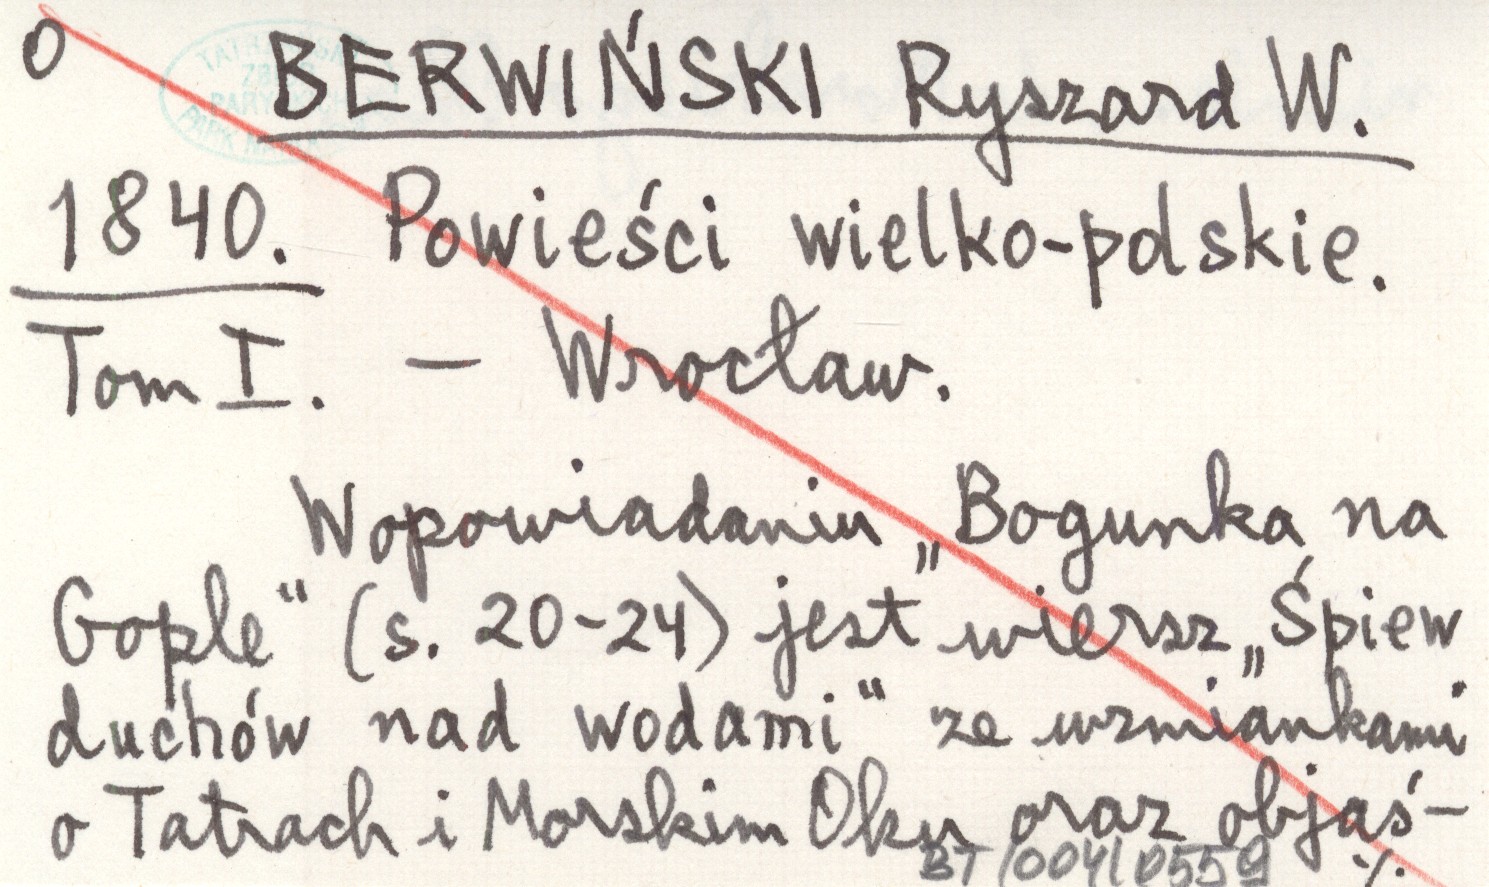 O BERWIŃSKI Ryszard W.
1840. Powieści wielko-polskie.
Tom I. - Wrocław.
W opowiadaniu „Bogunka na
Gople" (s. 20-24) jest wiersz „Śpiew
duchów nad wodami" ze wzmiankami
o Tatrach i Morskim Oku oraz objaś-
BT/004/0559 ./.